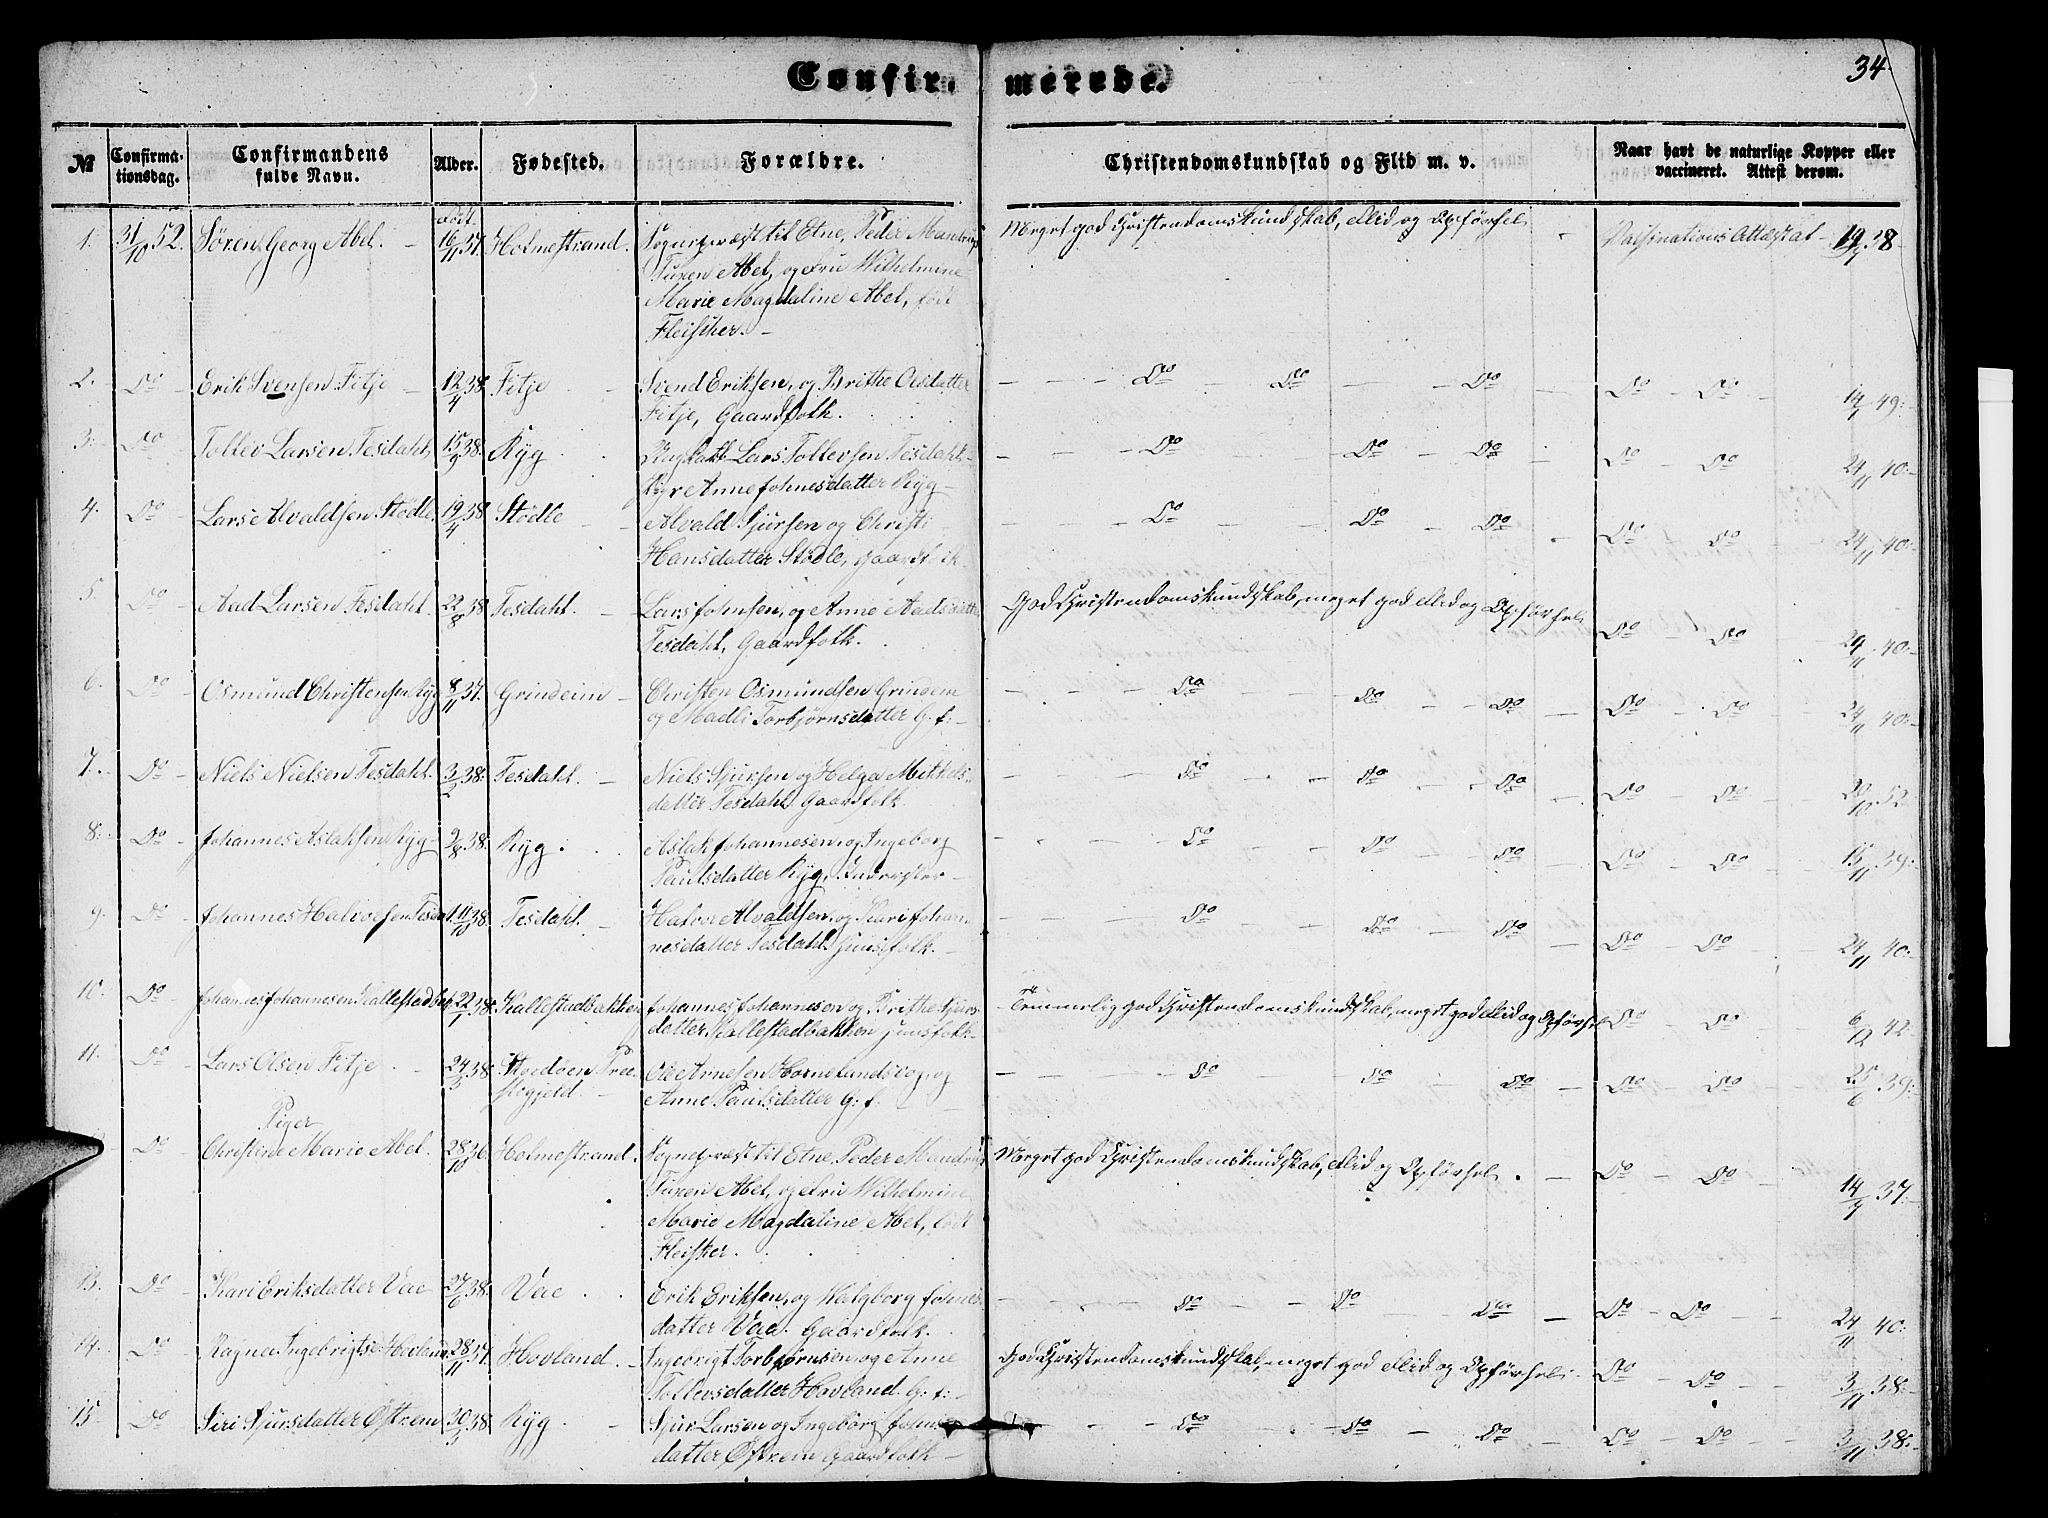 34
Confir- merede.
№ Confirma-tionsdag. Confirmandens fulde Navn. Alder. Fødested. Forældre. Christendomskundskab og Flid m. v. Naar havt de naturlige Kopper eller vaccineret. Attest derom.
1. 31/10 52. Sören Georg Abel. 16/11 37. Holmestrand. Sogneprest til Etne, Peder Mandrup Meget god Christendomskundskab, Flid og Opførsel Vaksinations Attestat 19/7 38
Tuxen Abel, og Frue Wilhelmine
Marie Magdaline Abel, født
Fleischer.
2. Do Erik Svensen Fitje 12/4 38. Fitje Svend Eriksen, og Brithe Olsdatter Do Do Do Do Do 14/7 49.
Fitje, Gaardfolk.
3. Do Tollev Larsen Tesdahl, 15/9 38. Ryg Lars Tollevsen Tesdahl Do Do Do Do Do 24/11 40.
Anne Johnesdatter Ryg
4. Do Lars Alvaldsen Stødle. 19/4 38 Stødle Alvald Sjursen og Christi Do Do Do Do Do 24/11 40.
Hansdatter Stødle, Gaardfolk
5. Do Aad Larsen Tesdahl. 22/8 38. Tesdahl. Lars Johnsen, og Anne Aadsdatter God Christendomskundskab, meget god Flid og Opførsel Do Do 24/11 40.
Tesdahl, Gaardfolk.
6. Do Osmund Christensen Ryg 8/11 37. Grindeim Christen Osmundsen Grindem Do Do Do Do Do 24/11 40.
og Madli Torbjørnsdatter G: f:
7. Do Niels Nielsen Tesdahl. 3/2 38. Tesdahl. Niels Sjursen og Helga Mikkels- Do Do Do Do Do 20/10 52
datter Tesdahl. Gaardfolk.
8. Do Johannes Aslaksen Ryg 9/8 38. Ryg. Aslak Johannesen og Ingeborg Do Do Do Do Do 15/11 39.
Paulsdatter Ryg, Inderster
9. Do Johannes Halvorsen Tesdal. 11/10 38. Tesdahl. Halvor Alvaldsen, og Kari Johan- Do Do Do Do Do 24/11 40.
nesdatter Tesdahl. Huusfolk.
10. Do Johannes Johannesen Kallestadbak. 22/1 38. Kallestadbakken Johannes Johannesen og Brithe Sjurs- Temmelig god Christendomskundskab, meget god Flid og Opførsel Do Do 6/12 42.
datter Kallestadbakken Huusfolk
11. Do Lars Olsen Fitje 24/3 38. Stordøen Præ- Ole Arnesen Hornelandsvog, og Do Do Do Do Do 25/6 39.
stegjeld. Anne Paulsdatter G: f:
Piger
Do Christine Marie Abel. 28/10 36 Holmestrand. Sogneprest til Etne Peder Mandrup Meget god Christendomskundskab, Flid og Opførsel. Do Do 14/7 37.
Tuxen Abel, og Frue Wilhelmine
Marie Magdaline Abel, født
Fleisker.
13. Do Kari Eriksdatter Vae 27/6 38. Vae Erik Eriksen, og Valgborg Johnes- Do Do Do Do Do 24/11 40.
datter Vae. Gaardfolk.
14. Do Ragna Ingebrigtsd Hovland 28/11 37. Hovland. Ingebrigt Torbjørnsen, og Anne God Christendomskundskab, meget god Flid og Opførsel Do Do 3/11 38.
Tollevsdatter Hovland. G: f:
15. Do Siri Sjursdatter Østrem 30/3 38. Ryg Sjur Larsen og Ingeborg Johns- Do Do Do Do Do 3/11 38.
datter Østrem Gaardfolk